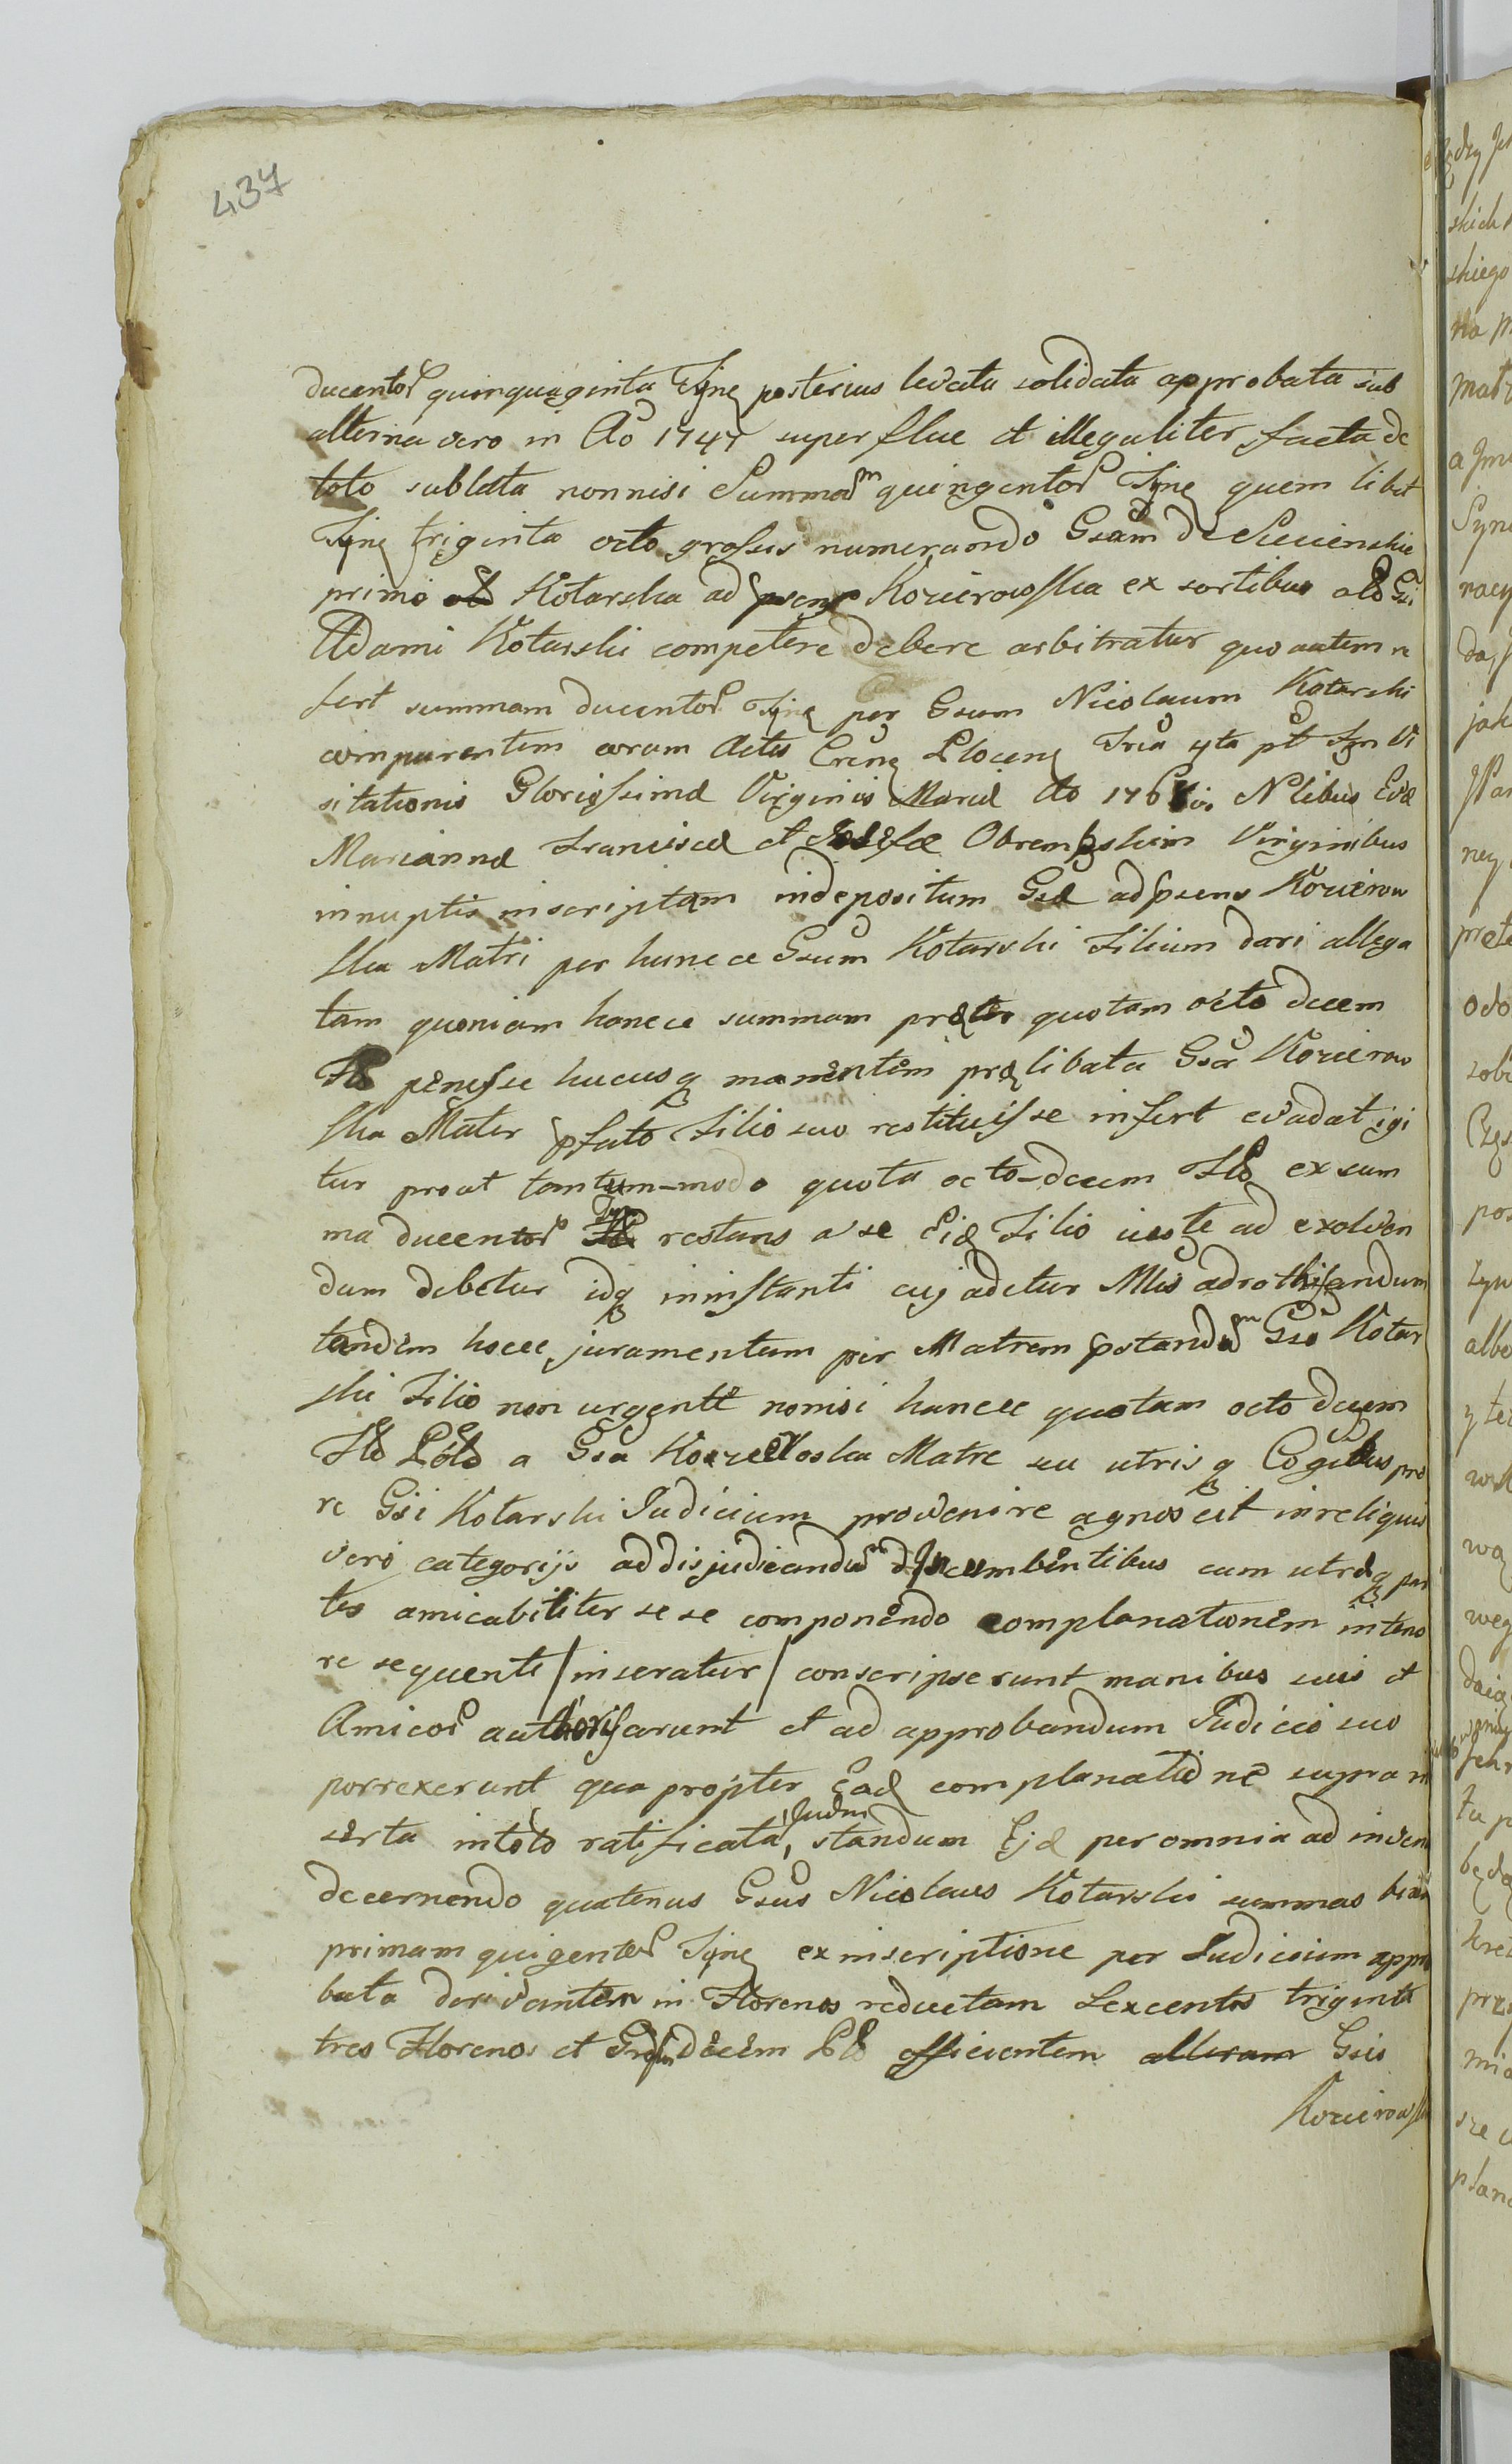 437
ducentor quinquaginta Tyne posterius levata solidata approbata sub
alterna vero in Ao 1747 superflue et illegaliter facta de
toto sublata nonnisi Summam quingentor Tyne quem libet
Tyne triginta octo grossis numerando Gsam de Siecienskie
primo Kotarska ad psens Kozierowska ex sortibus olo Gsi
Adami Kotarski competere debere arbitratur quo autem re
fert summam ducentor Tyne per Gsum Nicolaum Kotarski
comparentem coram Actis Crens Plocens Fria 4ta pt Fgn Vi
sitationis Gloriossimæ Virginis Mariæ Ao Nlibus Evæ
Mariannæ Franciscæ et Josefæ Obrempskim Virginibus
innuptis inscriptam indepositum Gsæ adpsens Kozierow
ska Matri per huncce Gsum Kotarski Filium dari allega
tam quoniam hancce summam præter quotam octo decem
Flo penesse hucusq manentem prælibata Gsa Kozierow
ska Mater pfato Filio suo restituisse infert evadat igi
tur prout tantum-modo quota octo-decem Flo ex sum
ma ducentor Tyn restans a se Eid Filio iuste ad exolven
dum debetur idq ininstanti cuj adetur Mlis adrothisandum
tandem hocce juramentum per Matrem pstandum Gso Kotar
ski Filio non urgente nonisi hancce quotam octo decem
Flo Polo a Gsa Matre seu utrisq Cogibus pro
re Gsi Kotarski Judicium provenire agnoscit inreliquis
vero categorijs addisjudicandum cum utræq par
tes amicabiliter se se componendo complanationem inteno
re sequenti /inseratur/ conscripserunt manibus suis et
Amicor authorisarunt et ad approbandum Judicio suo
porrexerunt qua propter Ead complanatione supra in
serta intoto ratificata, Judm standum Ejd per omnia ad inven
decernendo quatenus Gsus Nicolaus Kotarski summas binas
primam quigentor Tyne exinscriptione per Judicium appro
bata derivantem in Florenos reductam Sexcentos triginta
tres Florenos et Gross decem Plo efficientem alteram Gsis
Kozierowsk